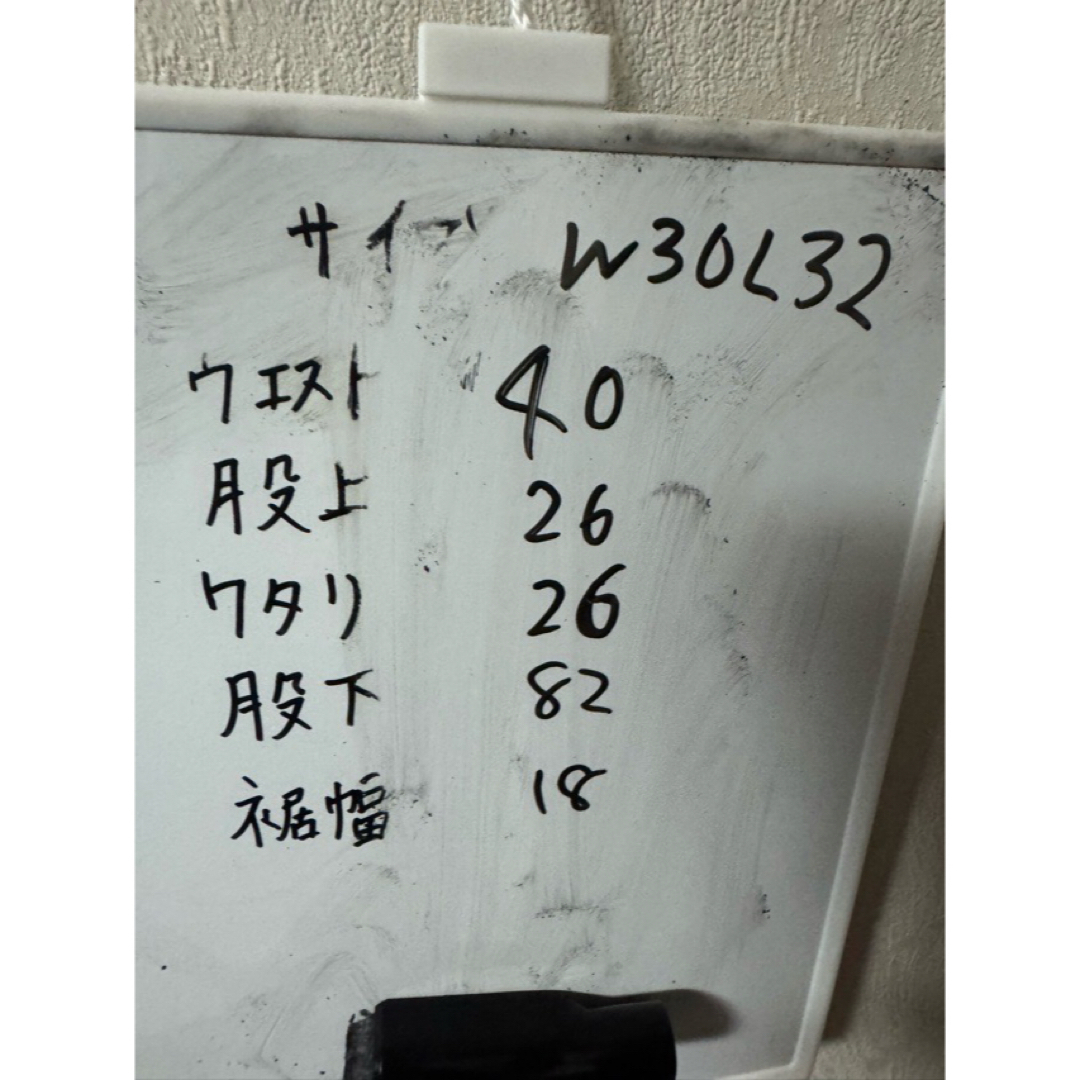 サイズ W30L32
ウエスト 40
股上 26
ワタリ 26
股下 82
裾幅 18